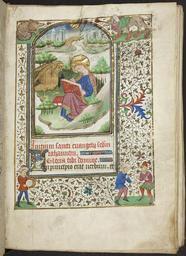 Inicium sancti euangelij secundum
Iohannem
Gloria tibi domine
In principio erat uerbum et